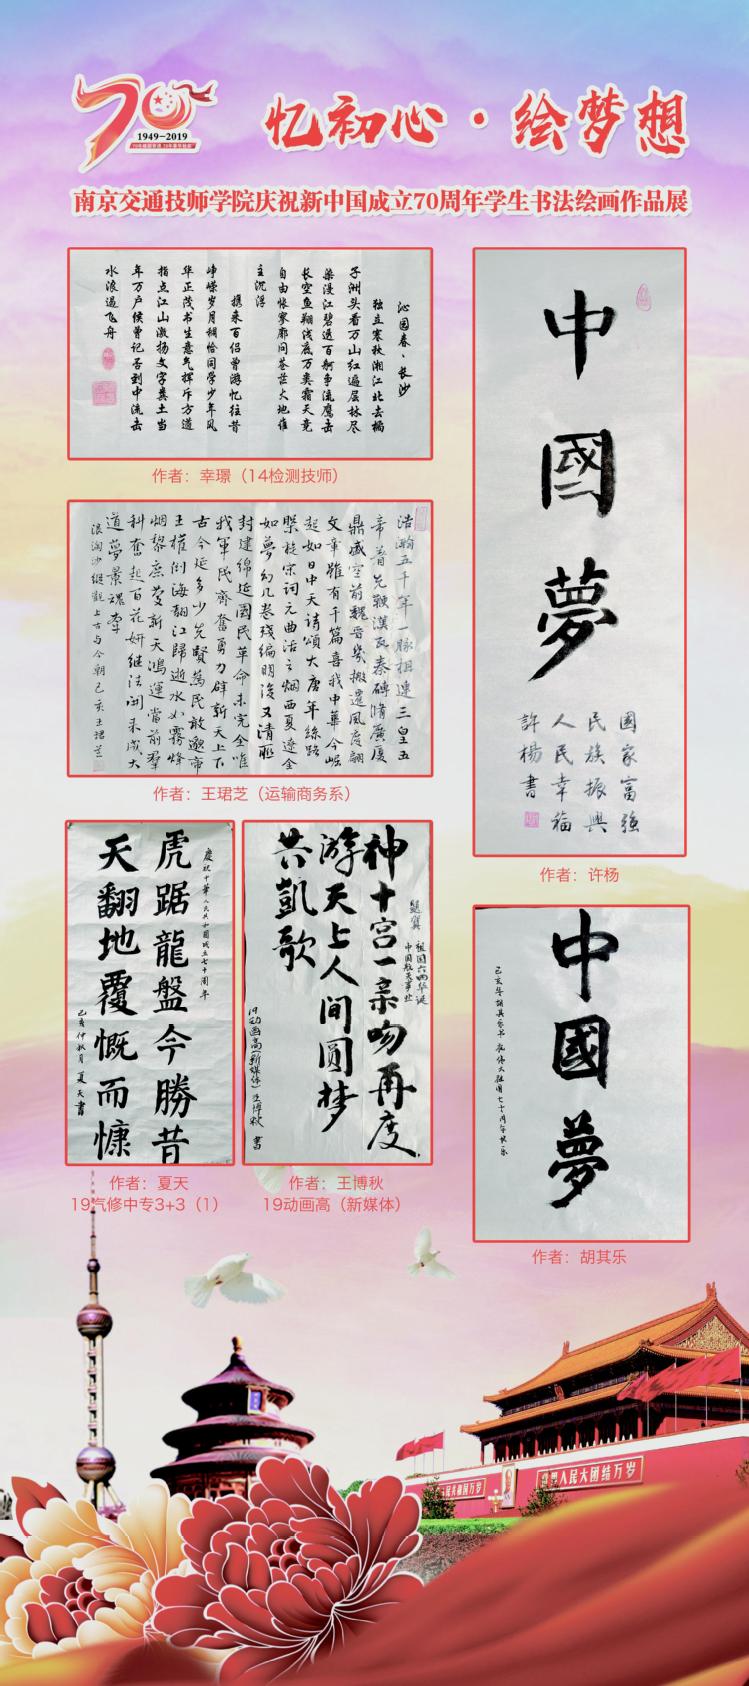 70
1949-2019
忆初心·绘梦想
南京交通技师学院庆祝新中国成立70周年学生书法绘画作品展
沁园春·长沙
独立寒秋湘江北去橘
子洲头看万山红遍层林尽
染漫江碧透百舸争流鹰击
长空鱼翔浅底万类霜天竞
自由怅寥廓问苍茫大地谁
主沉浮
携来百侣曾游忆往昔
峥嵘岁月稠恰同学少年风
华正茂书生意气挥斥方遒
指点江山激扬文字粪土当
年万户侯曾记否到中流击
水浪遏飞舟
作者：幸璟（14检测技师）
浩瀚五千年一脉相連三皇五
帝着先鞭漢瓦秦磚隋廣厦
鼎盛空前魏晋幾搬遷風度翩
文章雖有千篇喜我中華今崛
起如日中天請頌大唐年絲路
駝旋宋詞元曲活云烟西夏遼金
如夢幻几卷殘编明後又清亟
封建綿延國民革命未完全唯
我軍民齊奮勇力辟新天上下
古今延多少先賢萬民敢邀帝
王權倒海翻江歸逝水如霧烽
烟黎庶蔓新天鴻運當前群
科奮起百花妍继法開来成大
道夢景魂牽
浪淘沙縱觀上古与今朝己亥王珺芝
作者：王珺芝（运输商务系）
中國夢
國家富強
民族振興
人民幸福
許楊書
作者：许杨
慶祝中華人民共和國成立七十周年
虎踞龍盤今勝昔
天翻地覆慨而慷
己亥仲秋月夏天書
作者：夏天
19汽修中专3+3（1）
祖国六四华诞
中国航天事业
神十宫一亲吻再度
游天上人间圆梦
共凯歌
19动画高（新媒体）王博秋 書
作者：王博秋
19动画高（新媒体）
中國夢
己亥年胡其乐书 祝伟大祖国七十周年快乐
作者：胡其乐
人民共和国万岁
世界人民大团结万岁